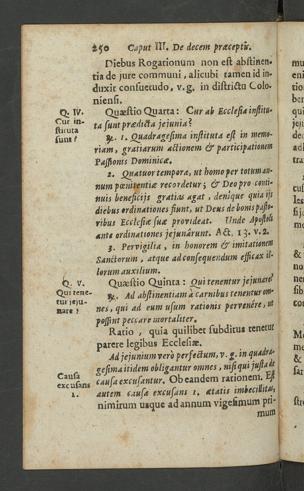 250 Caput III. De decem præceptis.
Diebus Rogationum non est abstinen-
tia de jure communi, alicubi tamen id in-
duxit consuetudo, v.g. in districtu Colo-
niensi.
Q. IV.
Cur in-
stituta
sunt?
Quæstio Quarta: Cur ab Ecclesia institu-
ta sunt prædicta jejunia?
℞. 1. Quadragesima instituta est in memo-
riam, gratiarum actionem & participationem
Passionis Dominicæ.
2. Quatuor tempora, ut homo per totum an-
num pœnitentiæ recordetur; & Deo pro conti-
nuis beneficijs gratias agat, denique quia ijs
diebus ordinationes fiunt, ut Deus de bonis pasto-
ribus Ecclesiæ suæ provideat. Unde Apostoli
ante ordinationes jejunârunt. Act. 13. v. 2.
3. Pervigilia, in honorem & imitationem
Sanctorum, atque ad consequendum efficax il-
lorum auxilium.
Q. V.
Qui tene-
tur jeju-
nare?
Quæstio Quinta: Qui tenentur jejunare?
℞. Ad abstinentiam à carnibus tenentur om-
nes, qui ad eum usum rationis pervenêre, ut
possint peccare mortaliter.
Ratio, quia quilibet subditus tenetur
parere legibus Ecclesiæ.
Ad jejunium verò perfectum, v.g. in quadra-
gesima itidem obligantur omnes, nisi qui justa de
causa excusantur. Ob eandem rationem. Est
Causa
excusans
1.
autem causa excusans 1. ætatis imbecillitas,
nimirum usque ad annum vigesimum pri-
mum